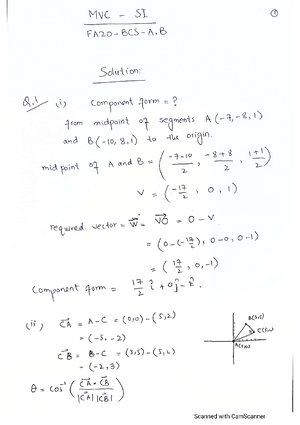 MVC - SI
①
FA20-BCS-A,B
Solution:
Q.1 (i) Component form = ?
from midpoint of segments A(-7,-8,1)
and B(-10,8,1) to the origin.
midpoint of A and B = ( (-7-10)/2 , (-8+8)/2 , (1+1)/2 )
V = ( -17/2 , 0 , 1 )
required vector = W = VO = O - V
= (0-(-17/2), 0-0, 0-1)
= ( 17/2 , 0, -1)
Component form = 17/2 î + 0ĵ - k̂.
(ii) CA = A-C = (0,0)-(5,2)
= (-5,-2)
CB = B-C = (3,5)-(5,2)
= (-2,3)
θ = cos⁻¹ ( CA • CB / |CA| |CB| )
Scanned with CamScanner